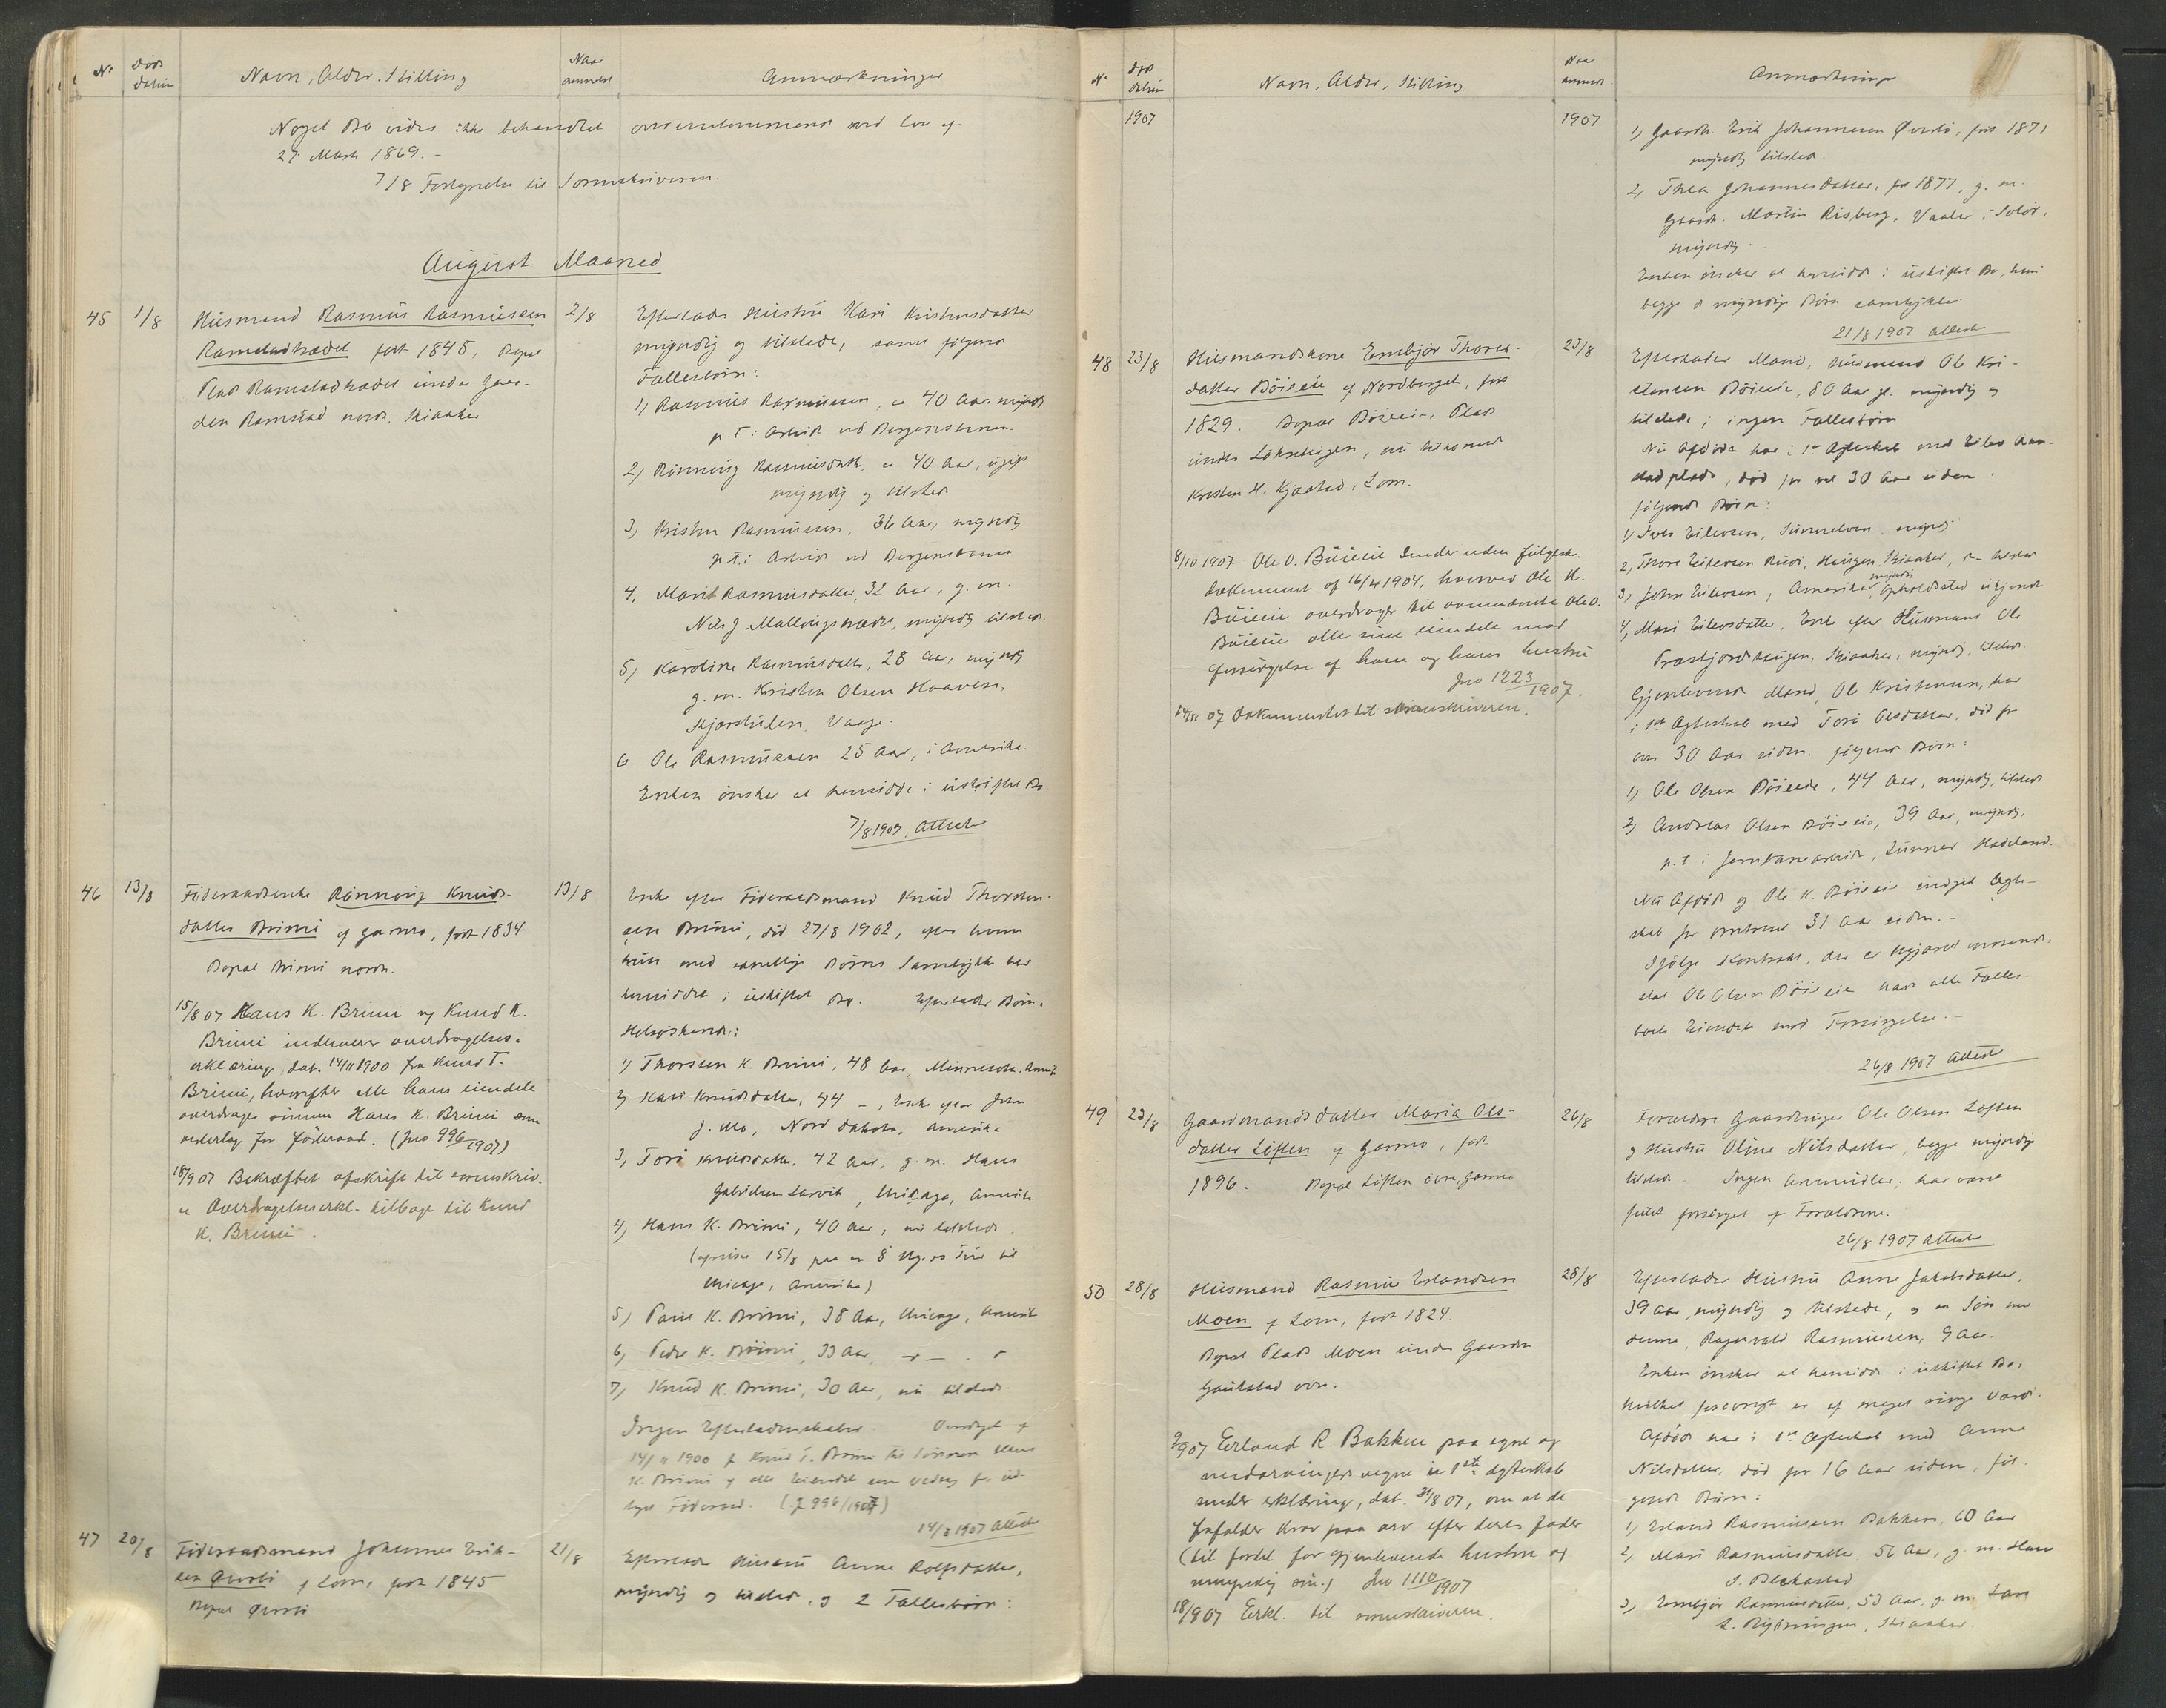 No
Døds
datum
Navn, Alder, Stilling
Naar
anmeldt
Anmærkninger
Noget Bo vides ikke behandlet overensstemmende med Lov af
27 Marts 1869. –
7/8 til Sorenskriveren.
August Maaned
45
1/8
Husmand Rasmus Rasmussen
Ramstadtrædet født 1845, Bopæl
Plads Ramstadtrædet under Gaar-
den Ramstad nordr. Skiaker
2/8
Efterlader Hustru Kari Kristensdatter
myndig og tilstede, samt følgende
Fællesbørn:
1) Rasmus Rasmussen, ca. 40 Aar myndig
p.t. i Arbeid ved Bergensbanen.
2) Rønnaug Rasmusdatter, ca 40 Aar, ugift
myndig og tilstede
3) Kristen Rasmussen, 36 Aar, myndig
p.t. i Arbeid ved Bergensbanen
4, Marit Rasmusdatter, 32 Aar, g. m.
Nils J. myndig tilstede.
5) Karoline Rasmusdatter, 28 Aar, myndig
g. m. Kristen Olsen Haaven,
Vaage.
6 Ole Rasmussen 25 Aar, i Amerika.
Enken ønsker at hensidde i uskiftet Bo
7/8 1907. Attest
46
13/8
Føderaadsenke Rønnaug Knuds-
datter Brimi af Garmo, født 1834
Bopæl Brimi nordr.
15/8 07 Hans K. Brimi og Knud K.
Brimi indleverer overdragelses-
erklæring, dat. 14/11 1900 fra Knud T.
Brimi, hvorefter alle hans eiendele
overdrages sønnen Hans K. Brimi som
vederlag for föderaad. (Jno 996/1907)
18/9 07 Bekræftet afskrift til sorenskriv.
Overdragelseserkl. tilbage til Knud
K. Brimi.
13/8
Enke efter Føderaadsmand Knud Thorsten-
sen Brimi, død 27/8 1902, efter hvem
hun med samtlige Børns Samtykke har
hensiddet i uskiftet Bo. Efterlader Børn,
Helsøskende:
1) Thorsten K. Brimi, 48 Aar, Minnesota. Amerik
2) Kari Knudsdatter, 44 –, Enke efter John
J. Mo, Nord Dakota, Amerika
3, Torø Knudsdatter, 42 Aar, g. m. Hans
Chicago, Amerik.
4) Hans K. Brimi, 40 Aar, nu tilstede
(afreiser 15/8 paa en 8 Ugers Tur til
Chicago, Amerika)
5) Paul K. Brimi, 38 Aar, Chicago, Amerik
6) Peder K. Brimi, 33 Aar, –"– . "
7) Knud K. Brimi, 30 Aar, nu tilstede.
Ingen Efterladenskaber. Overdraget af
14/11 1900 fra Knud T. Brimi til Sønnen Hans
K. Brimi af alle Eiendele som vederlag for
Føderaad. (J 996/1907)
14/8 1907 Attest
47
20/8
Føderaadsmand Johannes Erik-
sen Øvstbi af Lom, født 1845
Bopæl Øvstbi
21/8
Efterlader Hustru Anne Rolfsdatter,
myndig og tilstede, og 2 Fællesbørn:
No
Død
datum
Navn, Alder, Stilling
Naar
anmeldt.
Anmærkninger
1907
1907
1) Gaardb. Erik Johannesen Øvstbi, født 1871
myndig tilstede.
2, Thea Johannesdatter, født 1877, g. m.
Gaardb. Martin Risberg, Vaaler i Solør,
myndig.
Enken ønsker at hensidde i uskiftet Bo, hvori
begge de myndige Børn samtykker
21/8 1907 Attest
48
23/8
Husmandskone Embjør Thores-
datter Böieeie af Nordberget, født
1829. Bopæl Böieeie, Plads
under
Kristen H. Kjæstad, Lom.
8/10 1907 Ole O. Böieeie sender uden følgeskr.
dokument af 16/4 1904, hvorved Ole K.
Böieeie overdrager til ovennævnte Ole O.
Böieeie alle sine eiendele mod
forsörgelse af ham og hans hustru
Jno 1223/1907.
14/11 07 Dokumentet til sorenskriveren.
23/8
Efterlader Mand, Husmand Ole Kri-
stensen Böieeie, 80 Aar gl. myndig og
tilstede; ingen Fællesbørn
Nu Afdøde har i 1ste Ægteskab med Eilev
død for vel 30 Aar siden
følgende Børn:
1) Iver Eilevsen, myndig
2, Thore Eilevsen Skiaker, – tilstede
3, John Eilevsen, Amerika, myndig Opholdssted ukjendt
4, Mari Eilevsdatter, Enke efter Husmand Ole
Skiaker, myndig, tilstede.
Gjenlevende Mand, Ole Kristensen, har
i 1ste Ægteskab med Torø Olsdatter, død for
over 30 Aar siden. følgende Børn:
1) Ole Olsen Böieeie, 44 Aar, myndig, tilstede
2) Andreas Olsen Böieeie, 39 Aar, myndig,
p. t. i Jernbanearbeide, Lunner Hadeland.
Nu Afdøde og Ole K. Böieeie indgik Ægte-
skab for omtrent 31 Aar siden. –
Ifølge Kontrakt,
skal Ole Olsen Böieeie have alle Fælles-
boets Eiendele mod Forsørgelse. –
26/8 1907 Attest
49
23/8
Gaardmandsdatter Maria Ols-
datter Löften af Garmo, født
1896. Bopæl Löften øvre, Garmo
26/8
Forældre Gaardbruger Ole Olsen Löften
og Hustru Oline Nilsdatter, begge myndige
tilstede. Ingen Arvemidler; har været
fuldt forsørget af Forældrene.
26/8 1907 Attest
50
28/8
Husmand Rasmus Erlandsen
Moen af Lom, født 1824.
Bopæl Plads Moen under Gaarden
Gaukstad øvre.
9/9 07 Erland R. Bakken paa egne og
medarvingers vegne i 1ste ægteskab
sender erklæring, dat. 31/8 07, om at de
frafalder krav paa arv efter deres fader
(til fordel for gjenlevende hustru og
umyndig søn.) Jno 1110/1907
18/9 07 Erkl. til sorenskriveren.
28/8
Efterlader Hustru Anne Jakobsdatter,
39 Aar, myndig og tilstede, og en Søn med
denne, Ragnvald Rasmussen, 9 Aar.
Enken ønsker at hensidde i uskiftet Bo,
hvilket forøvrigt er af meget ringe Værdi.
Afdøde har i 1ste Ægteskab med Anne
Nilsdatter, død for 16 Aar siden, føl-
gende Børn:
1) Erland Rasmussen Bakken, 60 Aar
2, Mari Rasmusdatter, 56 Aar, g. m. Hans
3, Embjør Rasmusdatter, 53 Aar, g. m. Lars
Skiaker.